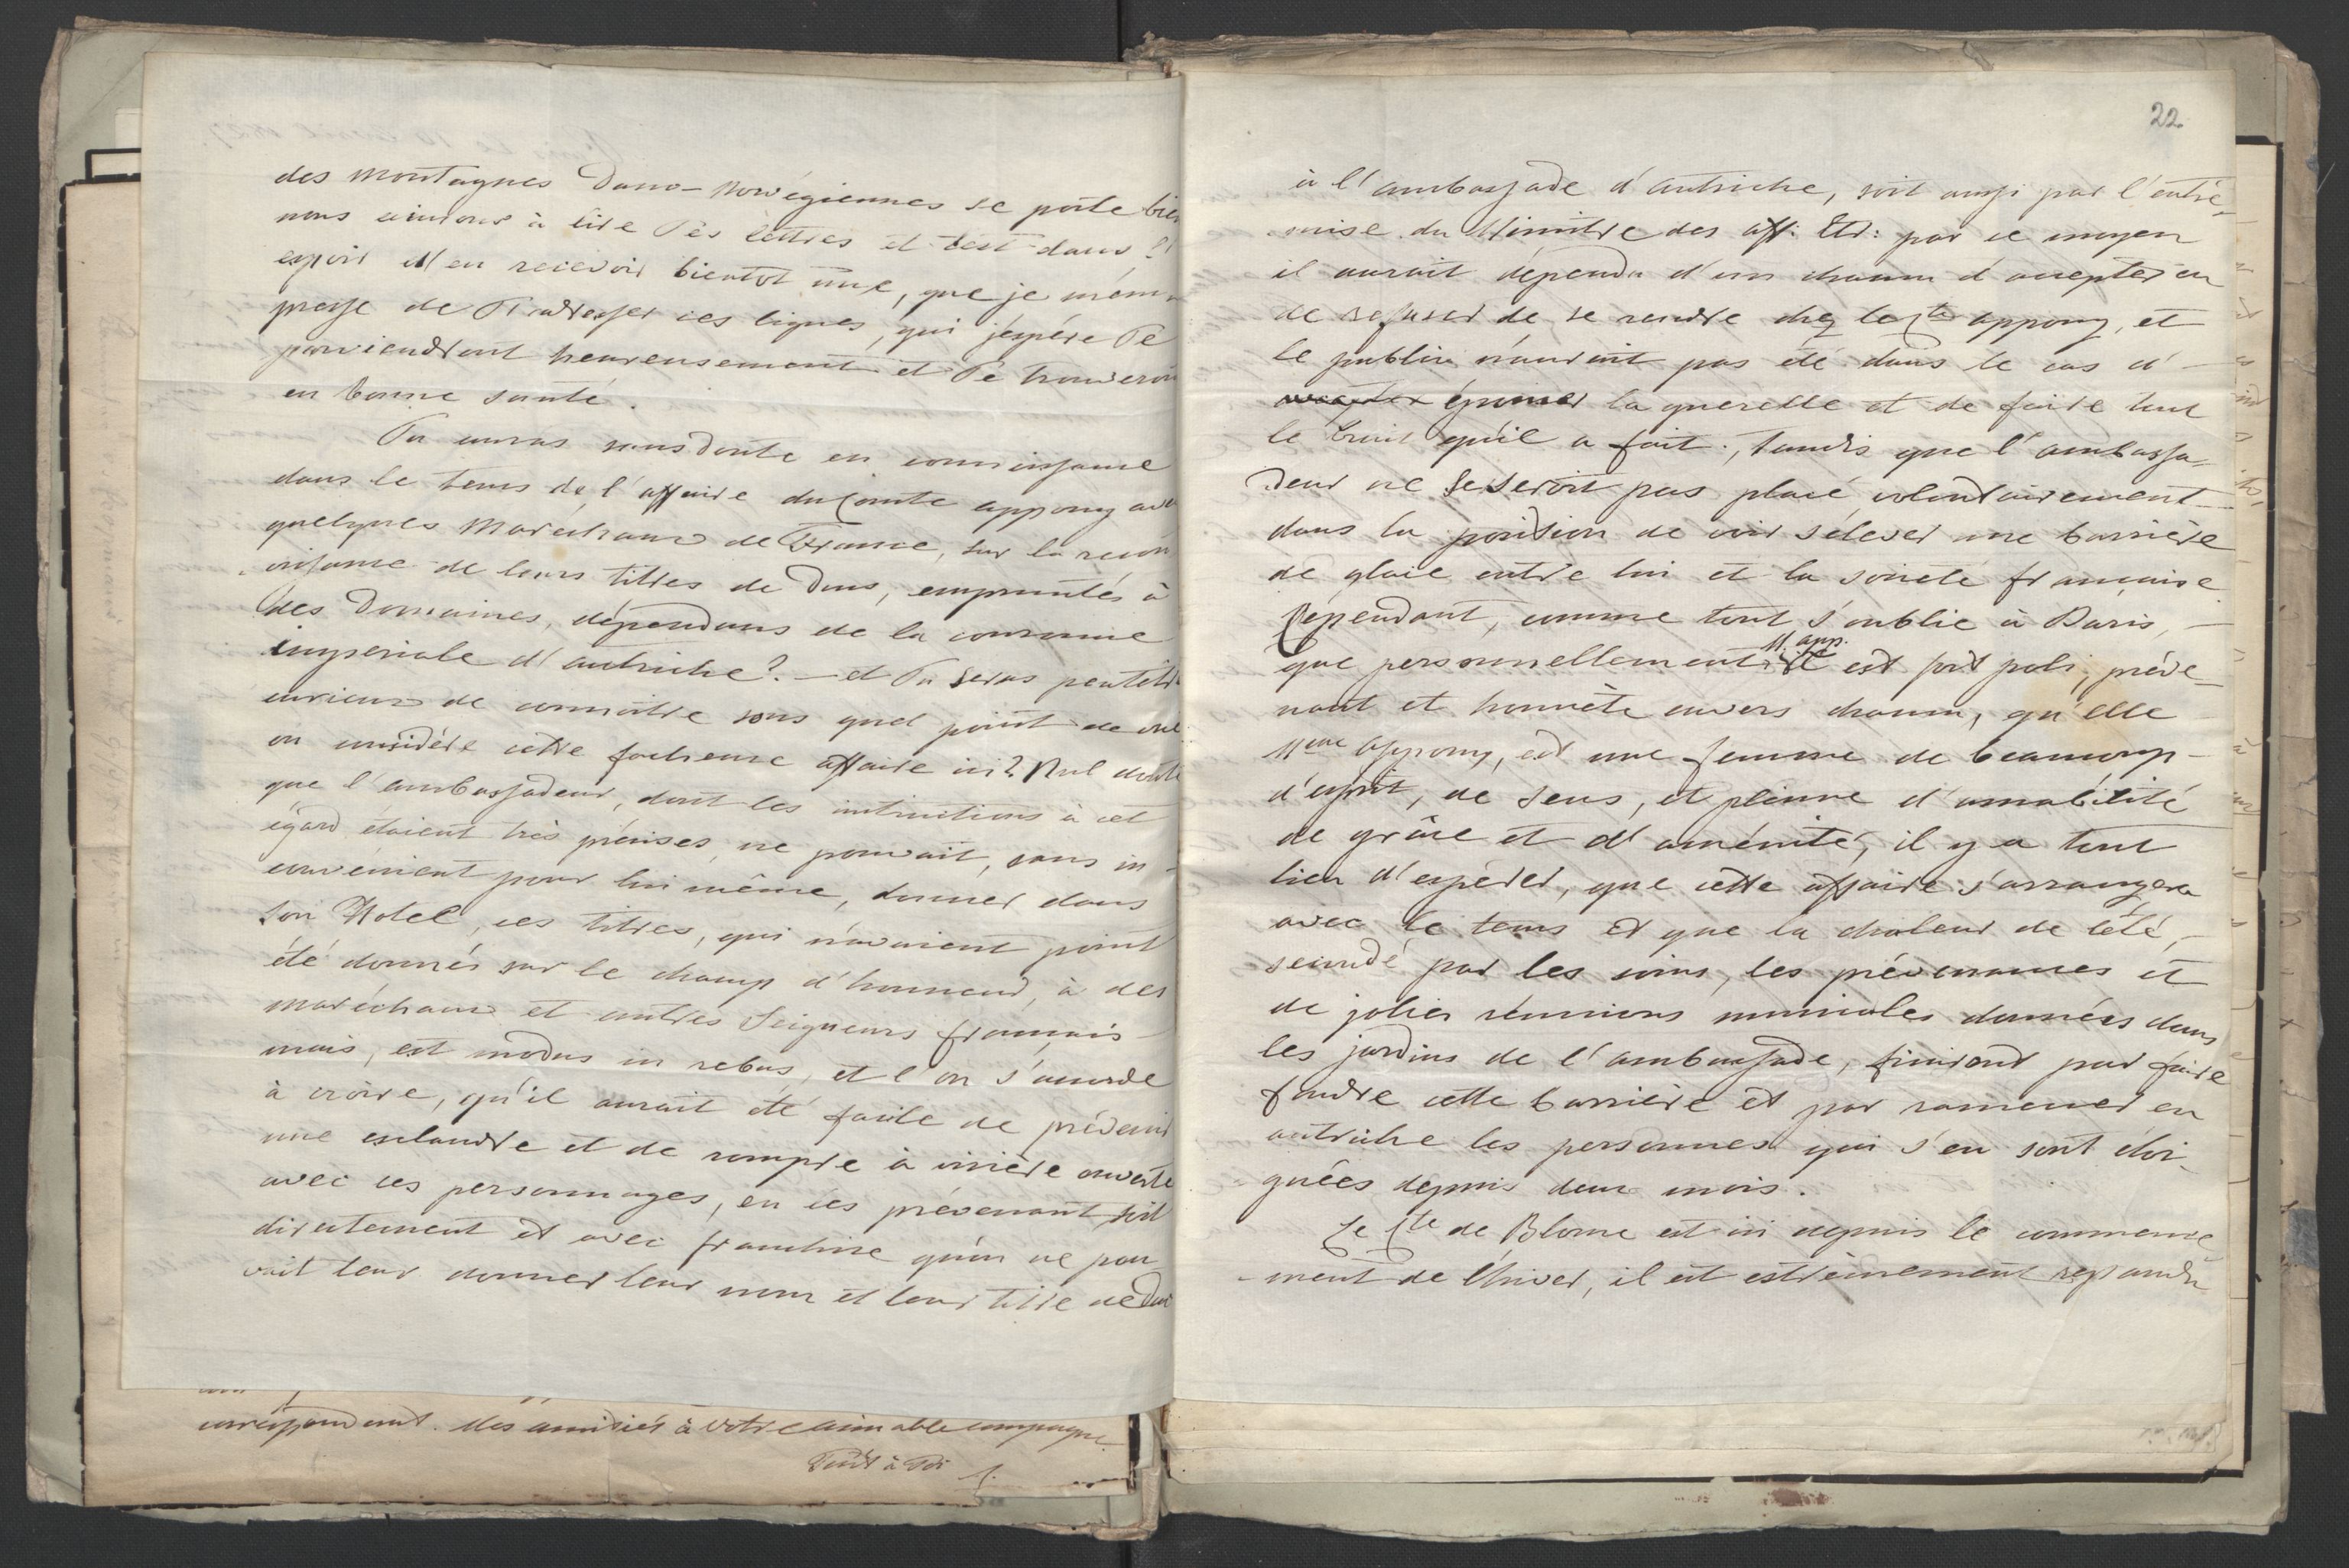 des montagnes Dano-Norvégiennes se porte bien
nous aimons à lire Tes lettres et c'est dans l'
espoir d'en recevoir bientot une, que je m'em-
presse de T'adresser ces lignes, qui j'espére Te
parviendront heureusement et Te trouveront
en bonne santé.
Tu auras sans doute eu connaissance
dans le tems de l'affaire du Comte appony avec
quelques Maréchaux de France, sur la recon-
naissance de leurs titres de Ducs, empruntés à
des Domaines, dépendans de la couronne
impériale d'autriche? - et Tu seras peutetre
curieux de connoitre sous quel point de vue
on considére cette facheuse affaire ici? Nul doute
que l'ambassadeur, dont les instructions à cet
égard étaient très précises, ne pouvait, sans in-
convénient pour lui même, donner dans
son Hotel, ces titres, qui n'avaient point
été donnés sur le champ d'honneur, à des
maréchaux et autres Seigneurs français -
mais, est modus in rebus, et l'on s'accorde
à croire, qu'il aurait été facile de prévenir
une esclandre et de rompre à visière ouverte
avec ces personnages, en les prévenant soit
directement et avec franchise qu'on ne pou-
vait leur donner leur nom et leur titre de Duc
correspondant. Mes amitiés à votre aimable compagne
Tout à Toi
22
à l'ambassade d'autriche, soit aussi par l'entre-
mise du Ministre des aff: Etr: par ce moyen
il aurait dépendu d'un chacun d'accepter ou
de refuser de se rendre chez le Cte appony, et
le public n'aurait pas été dans le cas d'-
épouser la querelle et de faire tout
le bruit qu'il a fait; tandis que l'ambassa-
deur ne se seroit pas placé volontairement
dans la position de voir s'élever une barrière
de glace entre lui et la société française
Cependant, comme tout s'oublie à Paris, -
M. app.
que personnellement est fort poli, préve-
nant et honnête envers chacun, qu'elle
Mme appony, est une femme de beaucoup -
d'esprit, de sens, et pleine d'amabilité
de grâce et d'aménité, il y a tout
lieu d'espérer, que cette affaire s'arrangera
avec le tems et que la chaleur de l'été, -
secondé par les soins, les prévenances et
de jolies réunions musicales données dans
les jardins de l'ambassade, finiront par faire
fondre cette barrière et par ramener en
autriche les personnes qui s'en sont éloi-
gnées depuis deux mois.
Le Cte de Blome est ici depuis le commence-
ment de l'hiver, il est extrèmement repandu